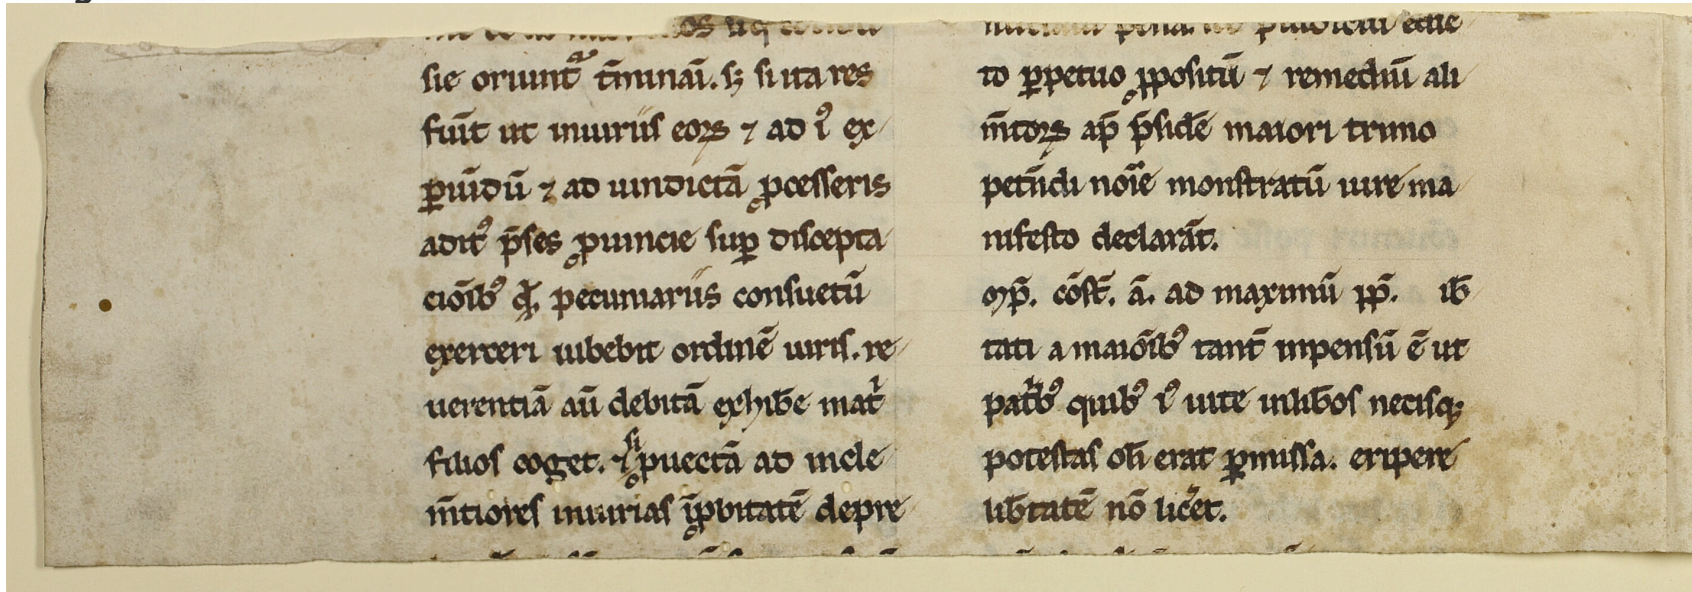 sie oriunt᷑ t̄minaī. sꝫ si ita res
fuīt ut iniuriis eoꝝ ⁊ ad iꝰ ex
ꝑiūdū ⁊ ad uindictā ꝓcesseris
aditꝰ p̄ses ꝓuincie suꝑ discepta
ciōibꝰ qͥ. pecuniariis consuetū
exerceri iubebit ordinē iuris. re
uerentiā aū debitā exhib̄e matͥ
filios coget. ⁊ si ꝓuectā ad incle
m̄tiores iniurias īꝓbitatē depre
to ꝑpetuo ꝓpositū ⁊ remediū ali
m̄toꝝ ap̄ p̄sidē maiori trimo
petūdi noīe monstratū iure ma
nifesto declarāt.
Mp̄. cōst̄. ā. ad maximū pp̄. ib̄
tati a maioībꝰ tant̄ inpensū ē ut
pat̄bꝰ quibꝰ iꝰ uite inlib̄os necisqꝫ
potestas oli erat ꝑmissa. eripere
lib̄tatē nō lic̄et.